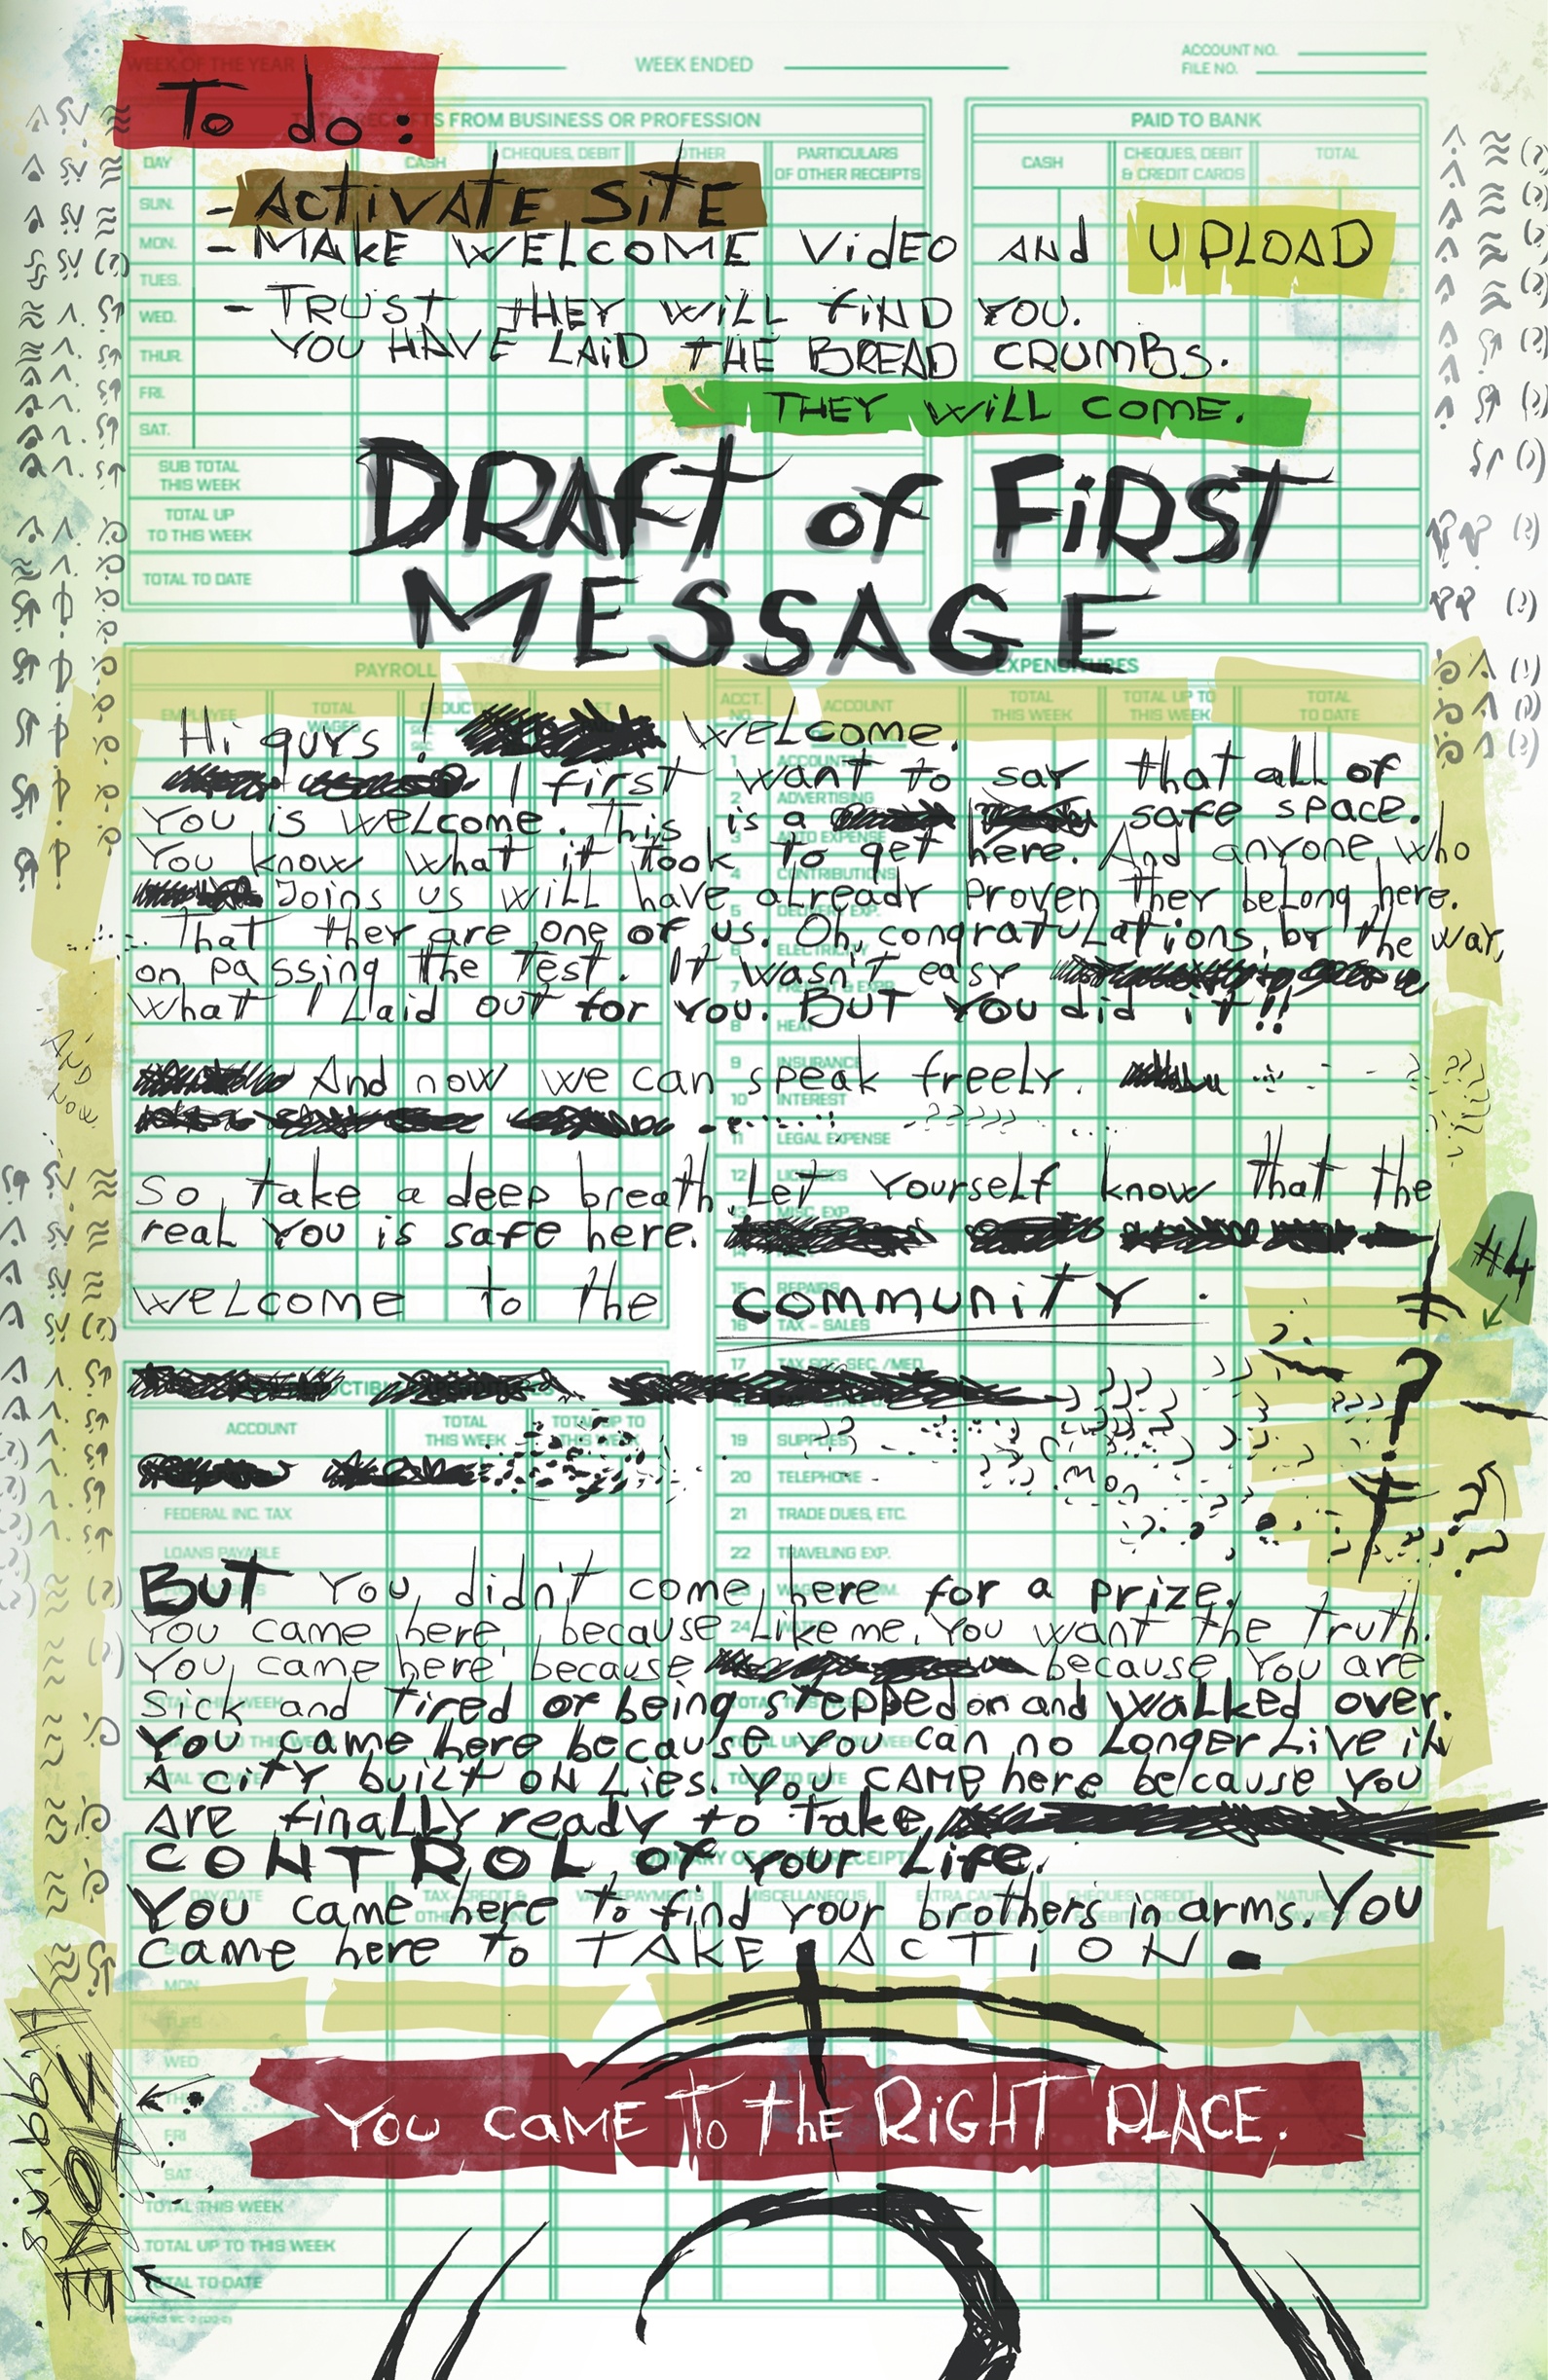 WEEK OF THE YEAR
WEEK ENDED
ACCOUNT NO.
FILE NO.
To do:
RECEIPTS FROM BUSINESS OR PROFESSION
PAID TO BANK
DAY
CASH
CHEQUES, DEBIT
OTHER
PARTICULARS
OF OTHER RECEIPTS
CASH
CHEQUES, DEBIT
& CREDIT CARDS
TOTAL
SUN.
- ACTIVATE SITE
MON.
- MAKE WELCOME VIDEO AND UPLOAD
TUES.
WED.
- TRUST THEY WILL FIND YOU.
THUR.
YOU HAVE LAID THE BREAD CRUMBS.
FRI.
THEY WILL COME.
SAT.
SUB TOTAL
THIS WEEK
TOTAL UP
TO THIS WEEK
TOTAL TO DATE
DRAFT of FIRST
MESSAGE
PAYROLL
EXPENDITURES
EMPLOYEE
TOTAL
WAGES
ACCT.
NO.
ACCOUNT
TOTAL
THIS WEEK
TOTAL UP TO
THIS WEEK
TOTAL
TO DATE
Hi guys! welcome.
I first want to say that all of
You is welcome. This is a safe space.
You know what it took to get here. And anyone who
Joins us will have already proven they belong here.
That they are one of us. Oh, congratulations, by the way,
on passing the Test. It wasn't easy
what I laid out for you. BUT You did it!!
And now we can speak freely.
AND
NOW
So, take a deep breath. Let Yourself know that the
real You is safe here.
welcome to the community.
#4
1 ACCOUNTING
2 ADVERTISING
3 AUTO EXPENSE
4 CONTRIBUTIONS
5 DELIVERY EXP.
6 ELECTRICITY
7 FREIGHT & EXPR.
8 HEAT
9 INSURANCE
10 INTEREST
11 LEGAL EXPENSE
12 LICENSES
13 MISC. EXP.
14
15 REPAIRS
16 TAX - SALES
17 TAX SOC. SEC. /MED.
18
19 SUPPLIES
20 TELEPHONE
21 TRADE DUES, ETC.
22 TRAVELING EXP.
23
24
ACCOUNT
TOTAL
THIS WEEK
TOTAL UP TO
THIS WEEK
FEDERAL INC. TAX
LOANS PAYABLE
BUT You didn't come here for a prize.
You came here because, Like me, You want the Truth.
You came here because because You are
Sick and Tired of being stepped on and walked over.
You came here because you can no Longer Live in
A CITY built on Lies. You CAME here because You
ARE finally ready to Take
CONTROL of your Life.
SUMMARY OF OTHER RECEIPTS
You came here to find your brothers in arms. You
came here to TAKE ACTION.
MON
TUES
WED
FRI
SAT
TOTAL THIS WEEK
TOTAL UP TO THIS WEEK
TOTAL TO DATE
YOU CAME To The RIGHT PLACE.